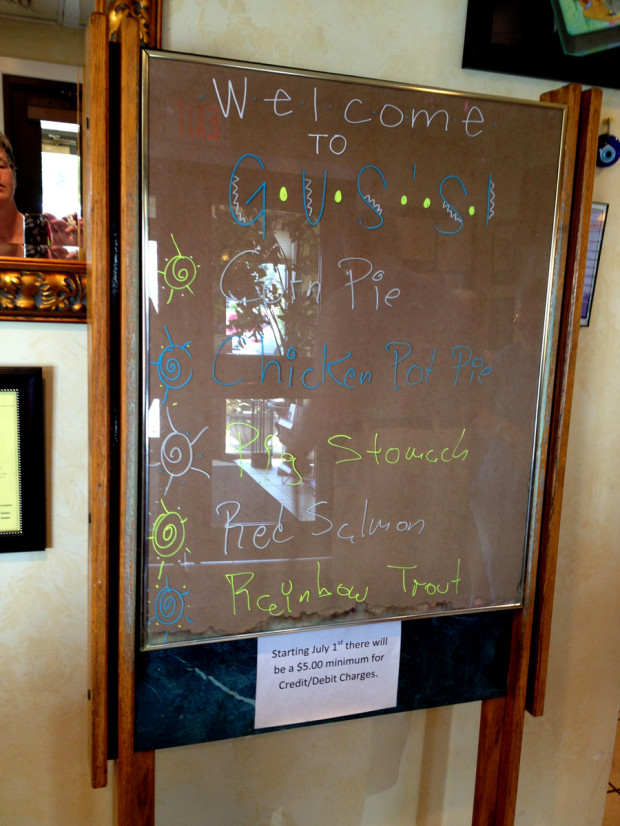 Welcome
TO
G•U•S'•S•!
Corn Pie
Chicken Pot Pie
Pig Stomach
Red Salmon
Rainbow Trout
Starting July 1st there will
be a $5.00 minimum for
Credit/Debit Charges.